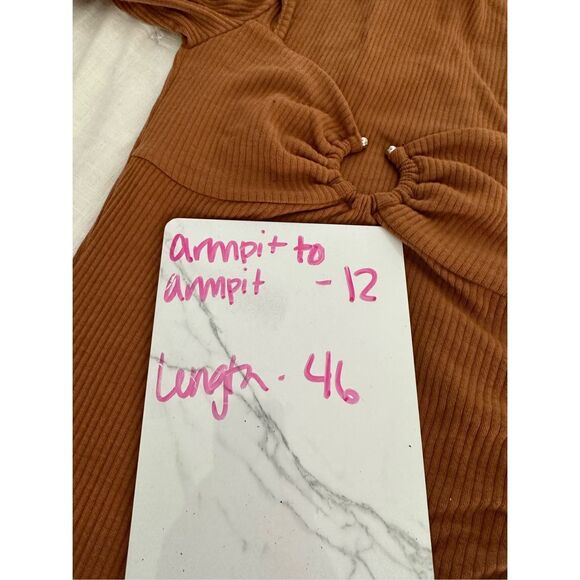 armpit to
armpit - 12
Length. 46